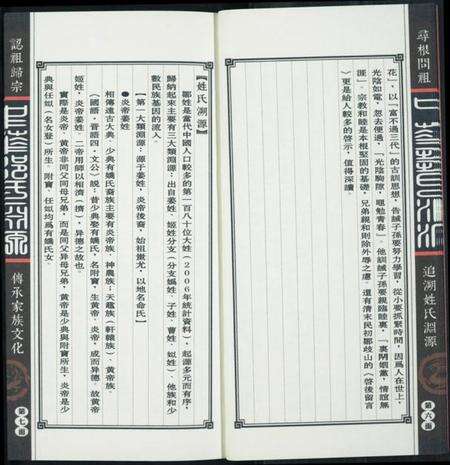 尋根問祖
追溯姓氏淵源
第六冊
花」，以「富不過三代」的古訓思想，告誡子孫要努力學習，從小要抓緊時間，因爲人在世上，
光陰如電，忽去便過，「光陰駒隙，砥勉青春」。他訓誡子孫要親臨睦裏，「裏閈姻黨，情誼無
涯」。宗教和睦是本根堅固的基礎，兄弟親和則除外辱之慮。還有清末民初鄒歧山的《啓後留言
》更是給人較多的啓示，值得深讀。
『姓氏淵源』
鄒姓是當代中國人口較多的第一百八十位大姓（2006年統計資料），起源多元而有序，
歸納起來主要有三大類淵源：出自姜姓、姬姓分支（分支嬀姓、子姓、曹姓、姒姓）、他族和少
數民族基因的流入。
【第一大類淵源：源子姜姓，炎帝後裔，始祖蚩尤，以地名命氏】
●炎帝姜姓
相傳遠古大典，少典有嬌氏裔族主要有炎帝族、神農族；天黿族（軒轅族）、黃帝族。
《國語．晉語四．文公》說：昔少典娶有嬌氏，名附寶，生黃帝、炎帝，成而异德。故黃帝
姬姓，炎帝姜姓。二帝用師以相濟（擠），异德之故也。
實際是炎帝、黃帝非同父同母兄弟，而是同父异母兄弟，黃帝是少典與附寶所生，炎帝是少
典與任姒（名女登）所生。附寶、任姒均爲有嬌氏女。
認祖歸宗
傳承家族文化
第七冊